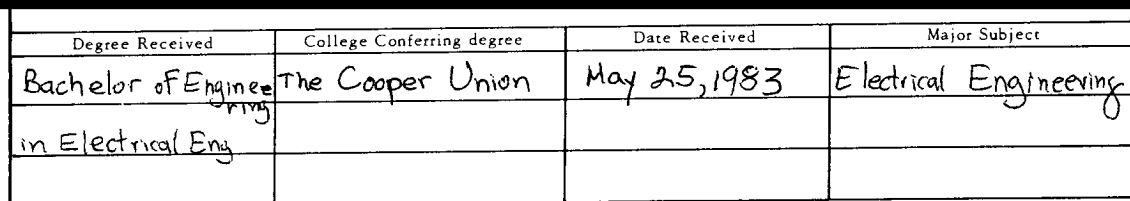 Degree Received College Conferring degree Date Received Major Subject
Bachelor of Enginee The Cooper Union May 25, 1983 Electrical Engineering
ring
in Electrical Eng